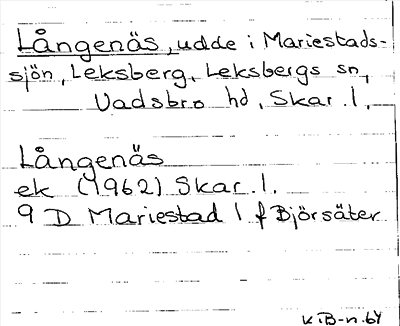 Långenäs, udde i Mariestads-
sjön, Leksberg, Leksbergs sn,
Vadsbro hd, Skar. l.
Långenäs
ek (1962) Skar. l.
9 D Mariestad 1 f Björsäter
K iB-n. 64